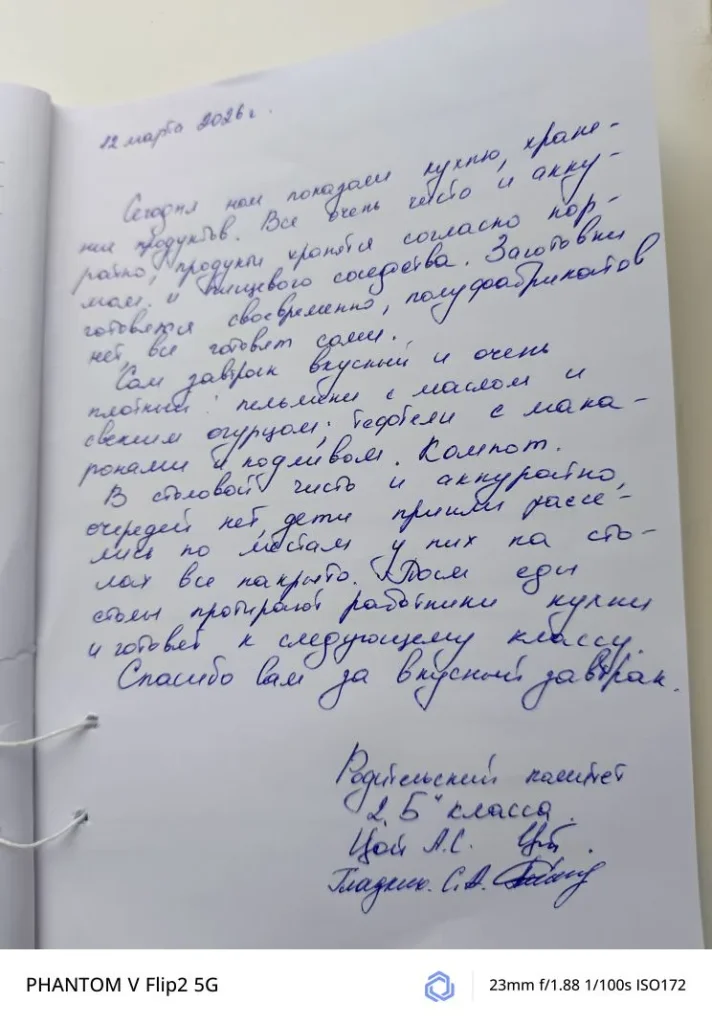 12 марта 2026 г.
Сегодня нам показали кухню, хране-
ние продуктов. Все очень чисто и акку-
ратно, продукты хранятся согласно нор-
мам и пищевого соседства. Заготовки
готовятся своевременно, полуфабрикатов
нет, все готовят сами.
Сам завтрак вкусный и очень
плотный: пельмени с маслом и
свежим огурцом; тефтели с мака-
ронами и подливом. Компот.
В столовой чисто и аккуратно,
очередей нет, дети пришли рассе-
лись по местам у них на сто-
лах все накрыто. После еды
столы протирают работники кухни
и готовят к следующему классу.
Спасибо вам за вкусный завтрак.
Родительский комитет
2 "Б" класса.
Цой А.С.
С.А.
PHANTOM V Flip2 5G
23mm f/1.88 1/100s ISO172